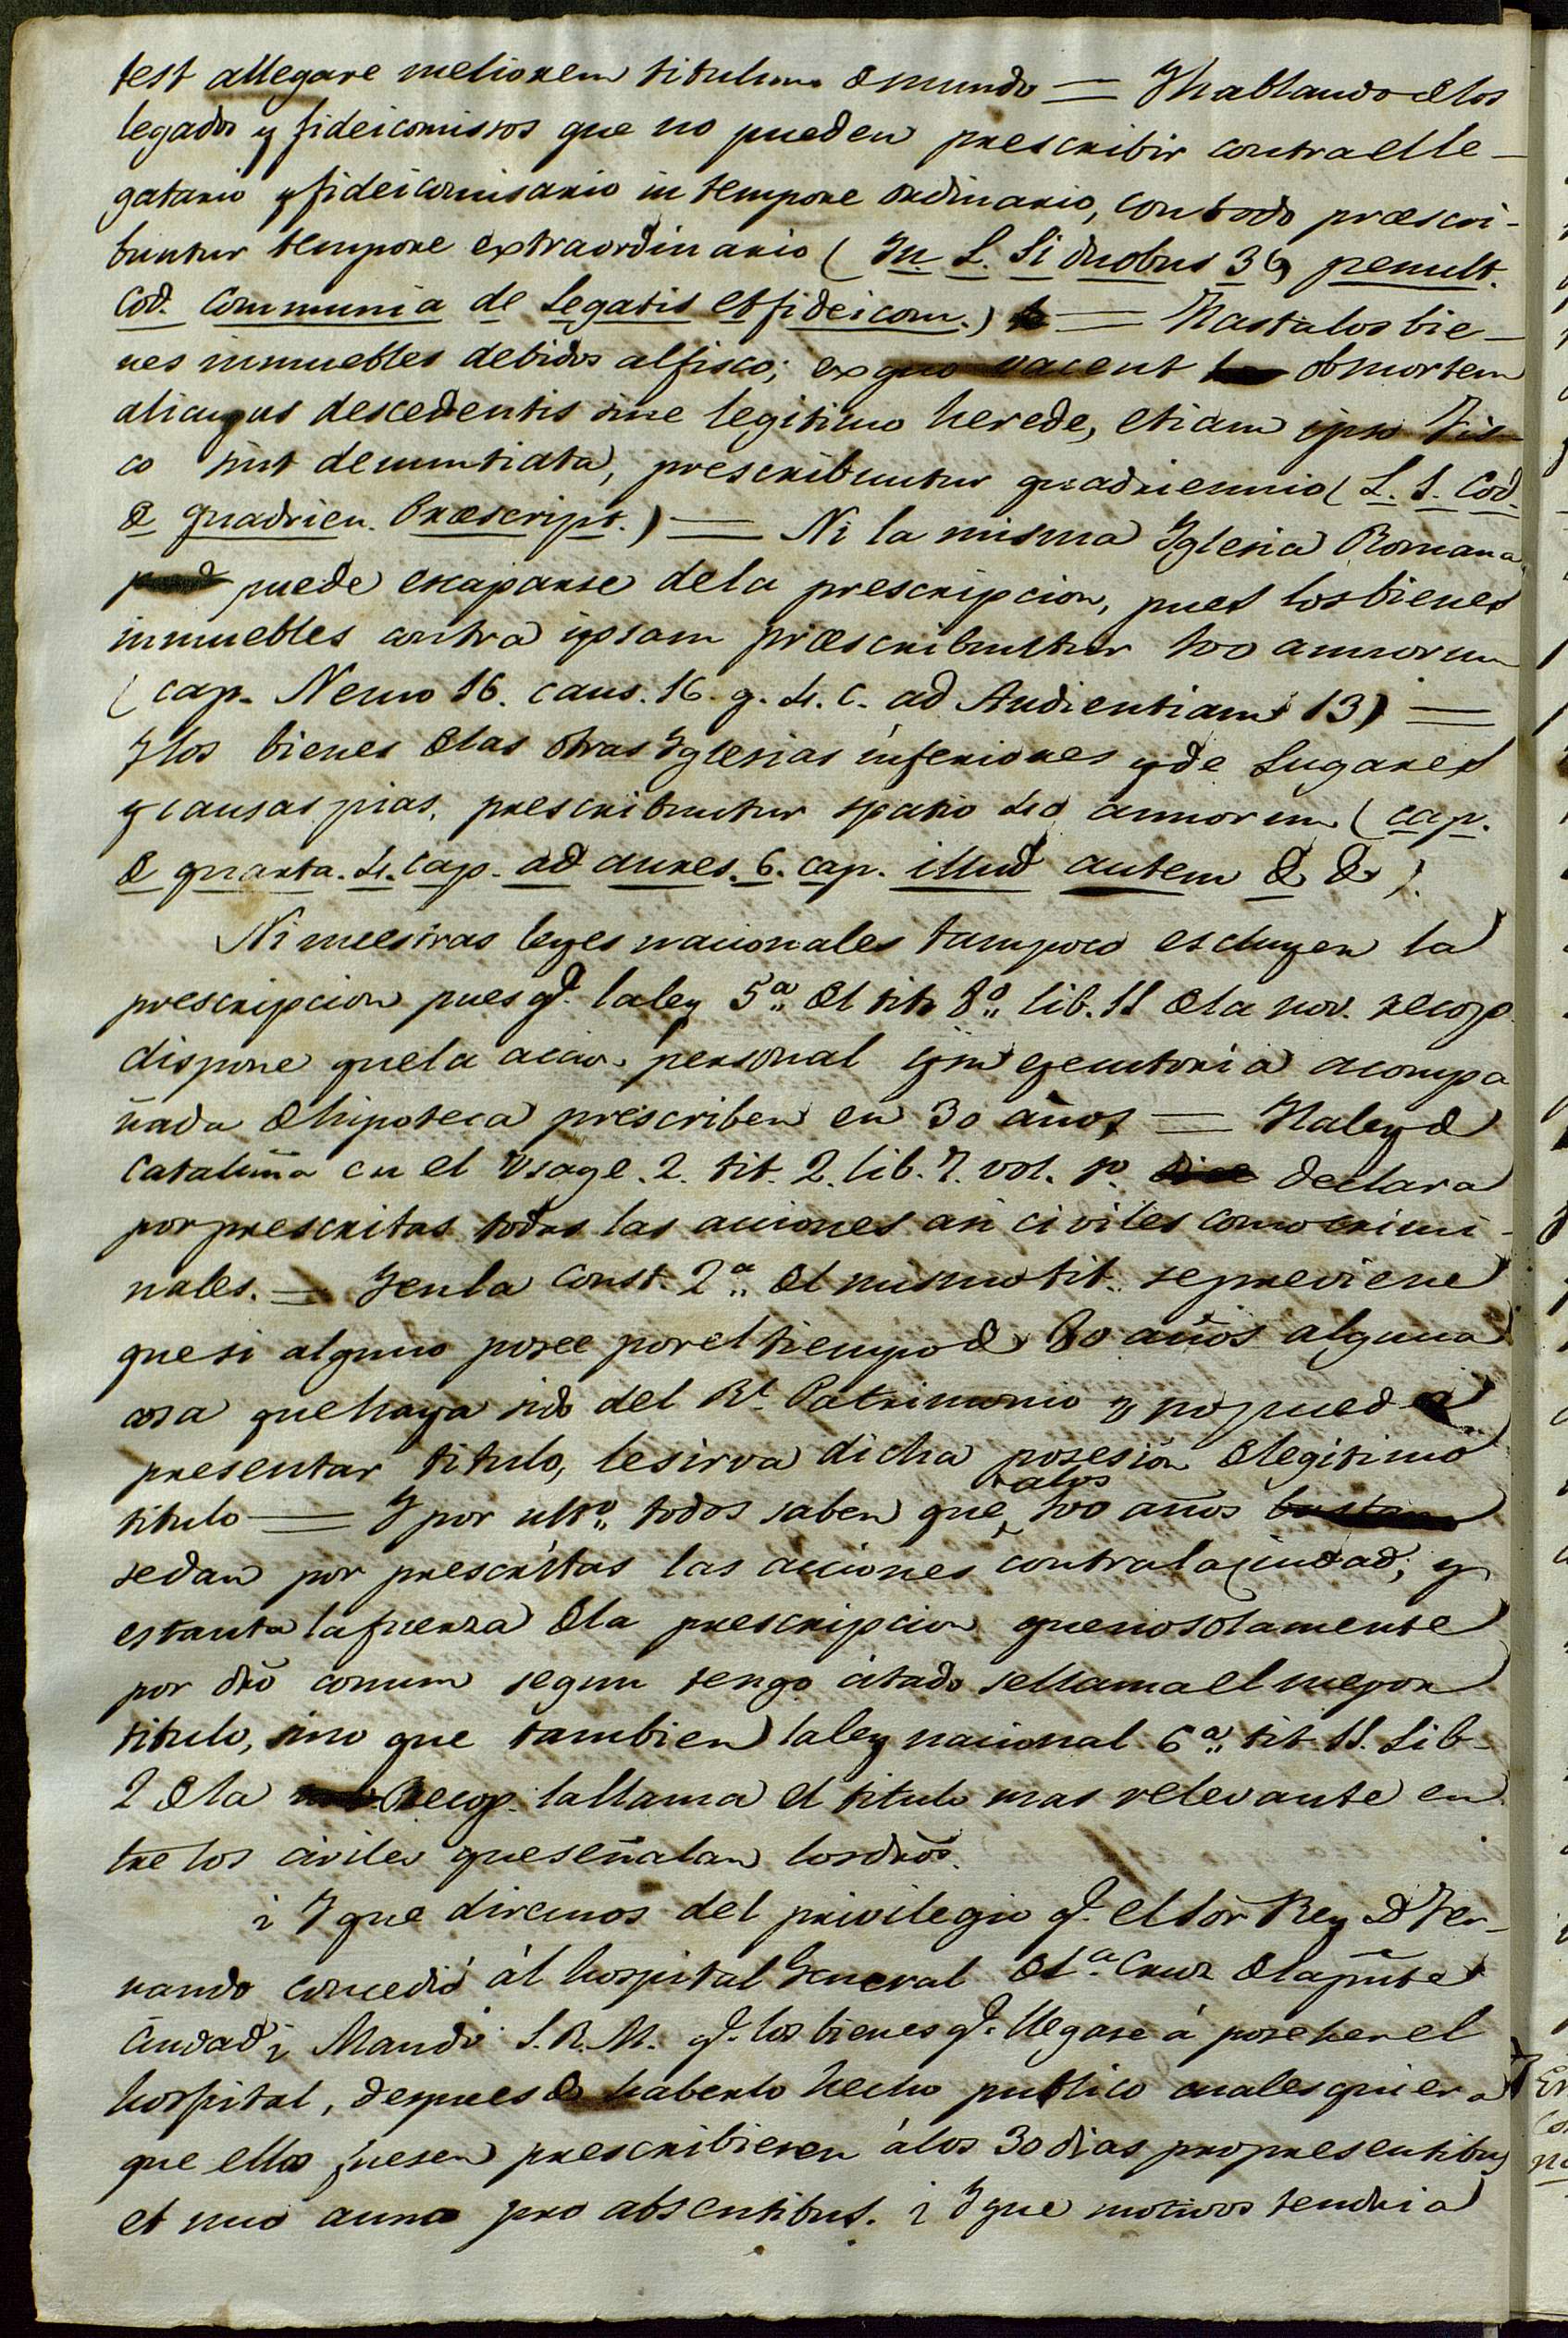 test allegare meliorem titulum de mundo = Y hablando de los
legados y fideicomissos que no pueden prescribir contra el le-
gatario y fideicomisario in tempore ordinario, con todo præscri-
buntur tempore extraordinario (In L. Si duobus 3 § penult.
Cod. Communia de Legatis et fideicom.) = Hasta los bie-
nes inmuebles debidos al fisco; ex quo vacent ob mortem
alicujus descedentis sine legitimo herede, etiam ipso Fis-
co sint denuntiata, prescribuntur quadriennio (L. 1. Cod.
de quadrien. Præscript.) = Ni la misma Yglesia Romana
puede escaparse dela prescripcion, pues los bienes
inmuebles contra ipsam præscribuntur 100 annorum
(cap. Nemo 16. caus. 16. q. 4. c. ad Audientiam 13) =
Y los bienes de las otras Yglesias inferiores y de Lugares
y causas pias, prescribuntur spatio 40 annorum (cap.
de quarta. 4. cap. ad aures. 6. cap. illud autem & &).
Ni nuestras leyes nacionales tampoco escluyen la
prescripcion pues q.e la ley 5.a del tit. 8.o lib. 11 de la nov. recop.
dispone que la accio. personal y su ejecutoria acompa
ñada de hipoteca prescriben en 30 años = Y la ley de
Cataluña en el Usage. 2. tit. 2. lib. 7. vol. 1.o declara
por prescritas todas las acciones asi civiles como crimi-
nales. = Y en la Const. 2.a del mismo tit. se previene
que si alguno posee por el tiempo de 30 años alguna
cosa que haya sido del R.l Patrimonio y no pueda
presentar titulo, le sirva dicha posesion de legitimo
titulo = Y por ult.o todos saben que a los 100 años
se dan por prescritas las acciones contra la Ciudad; y
es tanta la fuerza de la prescripcion que no solamente
por dro comun segun tengo citado se llama el mejor
titulo, sino que tambien la ley nacional 6.a tit. 11. Lib-
2 de la Recop. la llama el titulo mas relevante en
tre los civiles que señalan los dros.
¿Y que diremos del privilegio q.e el Sor Rey D.n Fer-
nando concedió ál hospital General de S.ta Cruz de la pñte
Ciudad? Mandó S.R.M. q.e los bienes q.e llegase á poseher el
hospital, despues de haberlo hecho publico cualesquiera
que ellos fuesen prescribiesen á los 30 dias pro presentibus
et uno anno pro absentibus. ¿Y que motivos tendria